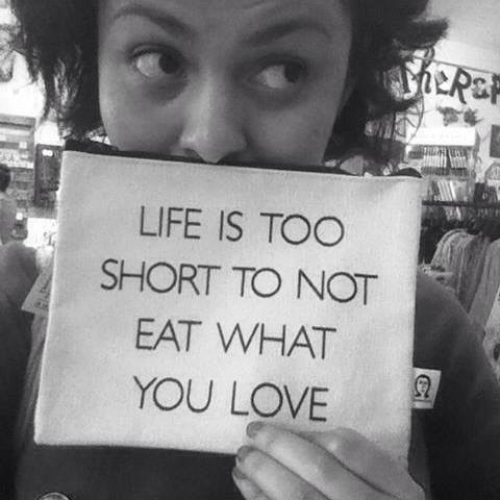 LIFE IS TOO
SHORT TO NOT
EAT WHAT
YOU LOVE